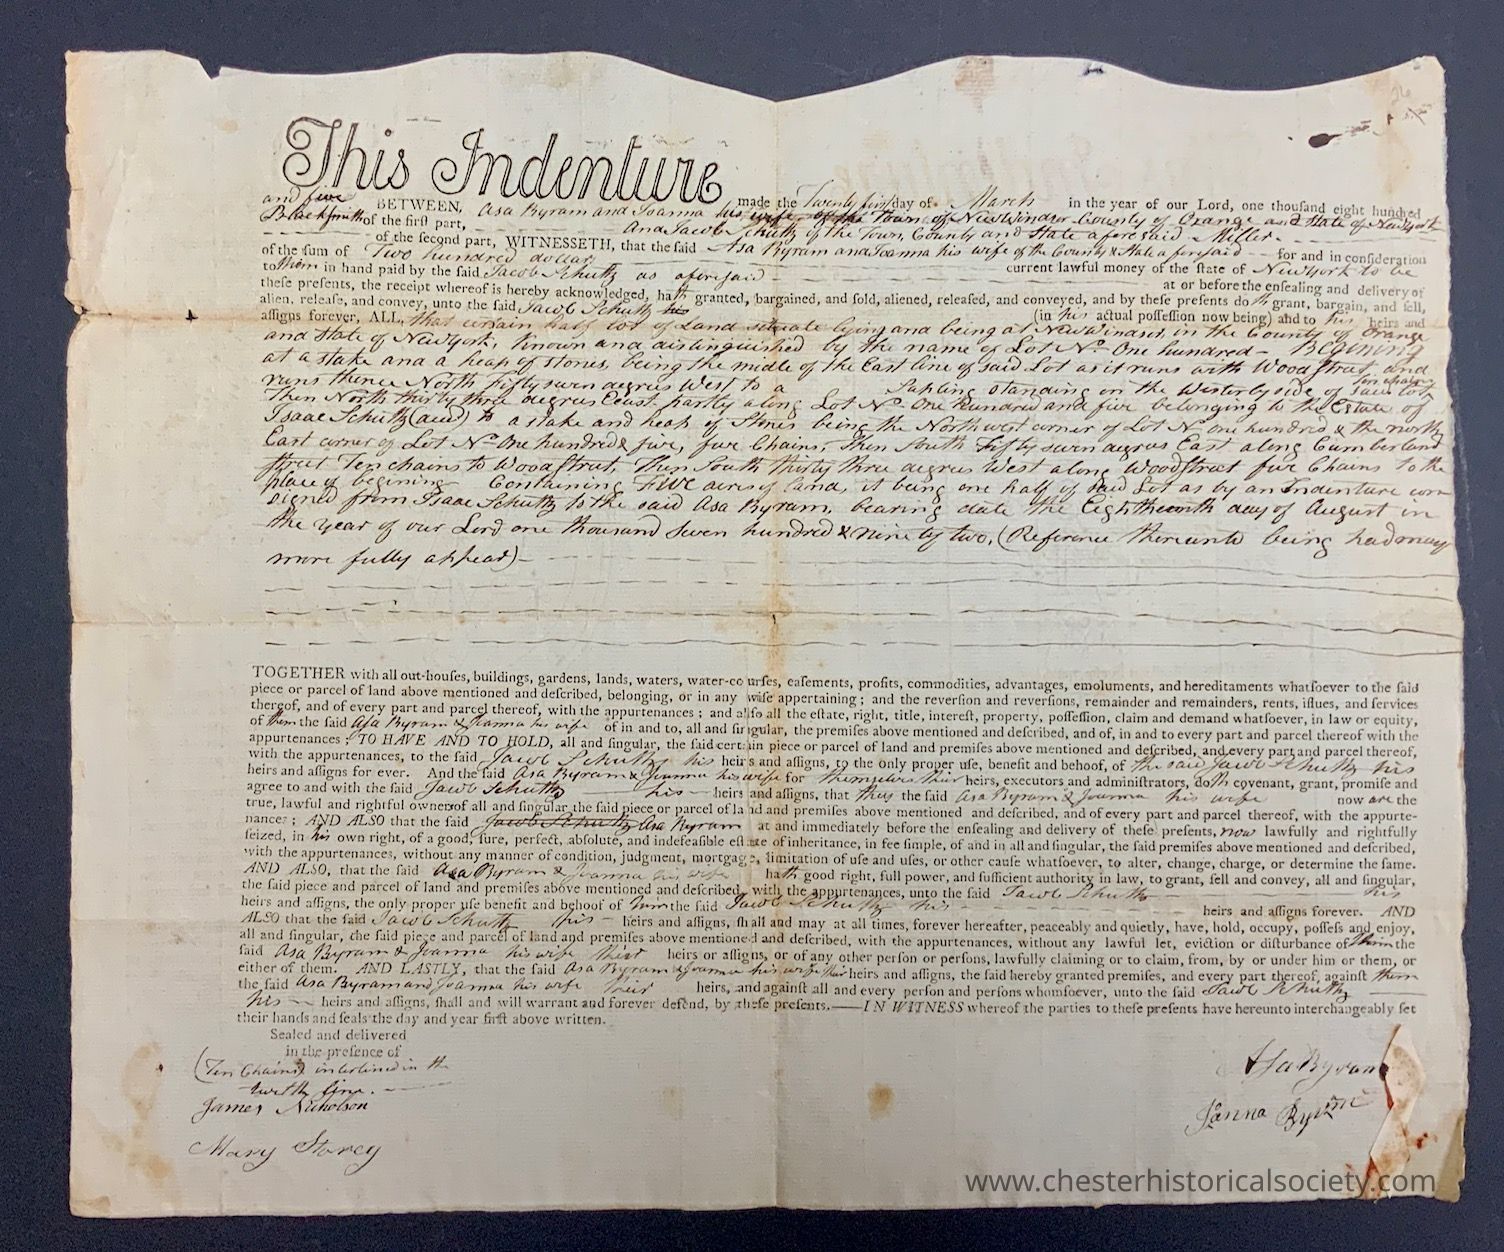 This Indenture made the Twenty first day of March in the year of our Lord, one thousand eight hundred
and five BETWEEN, Asa Byram and Joanna his wife of the Town of New Windsor County of Orange and State of New York
Blacksmith of the first part, and Jacob Schultz of the Town, County and State aforesaid Miller
of the second part, WITNESSETH, that the said Asa Byram and Joanna his wife of the County & State aforesaid for and in consideration
of the sum of Two hundred dollars current lawful money of the state of New York to be
to them in hand paid by the said Jacob Schultz as aforesaid at or before the ensealing and delivery of
these presents, the receipt whereof is hereby acknowledged, hath granted, bargained, and sold, aliened, released, and conveyed, and by these presents doth grant, bargain, and sell,
alien, release, and convey, unto the said Jacob Schultz his (in his actual possession now being) and to his heirs and
assigns forever, ALL that certain half lot of Land situate lying and being at New Windsor, in the County of Orange
and State of New York, known and distinguished by the name of Lot No. One hundred - Begining
at a stake and a heap of stones, being the middle of the East line of said Lot as it runs with Wood Street, and
runs thence North fifty sevn degres West to a Sapling standing in the Westerly side of said lot
ten chains
Then North thirty three degrees Eeast partly along Lot No. One hundred and five belonging to the Estate of
Isaac Schultz (decd) to a stake and heap of Stones being the North west corner of Lot No one hundred & the north
East corner of Lot No One hundred & five, five Chains, Then South Fifty sevn degres East along Cumberland
street Ten chains to Wood Street, Then South thirty three degrees West along Wood Street five Chains to the
place of begining Containing FIVE acres of land, it being one half of said Lot as by an Indenture con
signed from Isaac Schultz to the said Asa Byram, bearing date the Eightheenth day of August in
the Year of our Lord one thousand Seven hundred & nine ty two, (Reference thereunto being had may
more fully appear)
TOGETHER with all out-houses, buildings, gardens, lands, waters, water-courses, easements, profits, commodities, advantages, emoluments, and hereditaments whatsoever to the said
piece or parcel of land above mentioned and described, belonging, or in any wise appertaining; and the reversion and reversions, remainder and remainders, rents, issues, and services
thereof, and of every part and parcel thereof, with the appurtenances; and also all the estate, right, title, interest, property, possession, claim and demand whatsoever, in law or equity,
of them the said Asa Byram & Joanna his wife of in and to, all and singular, the premises above mentioned and described, and of, in and to every part and parcel thereof with the
appurtenances; TO HAVE AND TO HOLD, all and singular, the said certain piece or parcel of land and premises above mentioned and described, and every part and parcel thereof,
with the appurtenances, to the said Jacob Schultz his heirs and assigns, to the only proper use, benefit and behoof, of the said Jacob Schultz his
heirs and assigns for ever. And the said Asa Byram & Joanna his wife for themselves their heirs, executors and administrators, doth covenant, grant, promise and
agree to and with the said Jacob Schultz his heirs and assigns, that they the said Asa Byram & Joanna his wife now are the
true, lawful and rightful owners of all and singular the said piece or parcel of land and premises above mentioned and described, and of every part and parcel thereof, with the appurte-
nances; AND ALSO that the said Jacob Schultz Asa Byram at and immediately before the ensealing and delivery of these presents, now lawfully and rightfully
seized, in his own right, of a good, sure, perfect, absolute, and indefeasible estate of inheritance, in fee simple, of and in all and singular, the said premises above mentioned and described,
with the appurtenances, without any manner of condition, judgment, mortgage, limitation of use and uses, or other cause whatsoever, to alter, change, charge, or determine the same.
AND ALSO, that the said Asa Byram & Joanna his wife hath good right, full power, and sufficient authority in law, to grant, sell and convey, all and singular,
the said piece and parcel of land and premises above mentioned and described, with the appurtenances, unto the said Jacob Schultz his
heirs and assigns, the only proper use benefit and behoof of him the said Jacob Schultz his heirs and assigns forever. AND
ALSO that the said Jacob Schultz his heirs and assigns, shall and may at all times, forever hereafter, peaceably and quietly, have, hold, occupy, possess and enjoy,
all and singular, the said piece and parcel of land and premises above mentioned and described, with the appurtenances, without any lawful let, eviction or disturbance of them the
said Asa Byram & Joanna his wife their heirs or assigns, or of any other person or persons, lawfully claiming or to claim, from, by or under him or them, or
either of them. AND LASTLY, that the said Asa Byram & Joanna his wife their heirs and assigns, the said hereby granted premises, and every part thereof, against them
the said Asa Byram and Joanna his wife their heirs, and against all and every person and persons whomsoever, unto the said Jacob Schultz
his heirs and assigns, shall and will warrant and forever defend, by these presents. IN WITNESS whereof the parties to these presents have hereunto interchangeably set
their hands and seals the day and year first above written.
Sealed and delivered
in the presence of
(Ten Chains) interlined in the
twelth line.
James Nicholson
Mary Storey
Asa Byram
Janna Byram
www.chesterhistoricalsociety.com